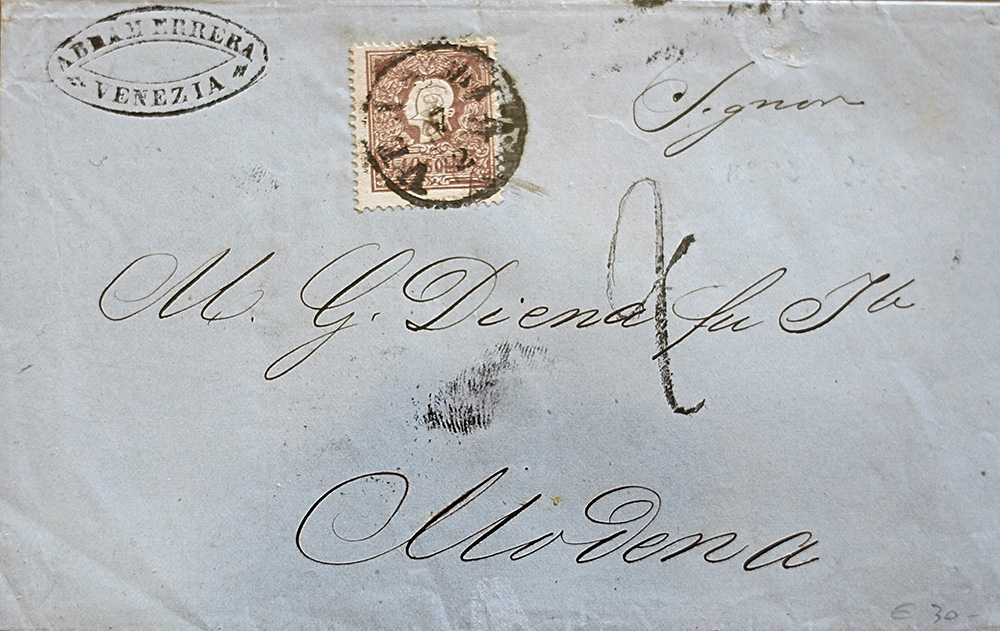 ABRAM ERRERA
VENEZIA
10 SOLDI
Signor
M. G. Diena fu Jb
Modena
€ 30-